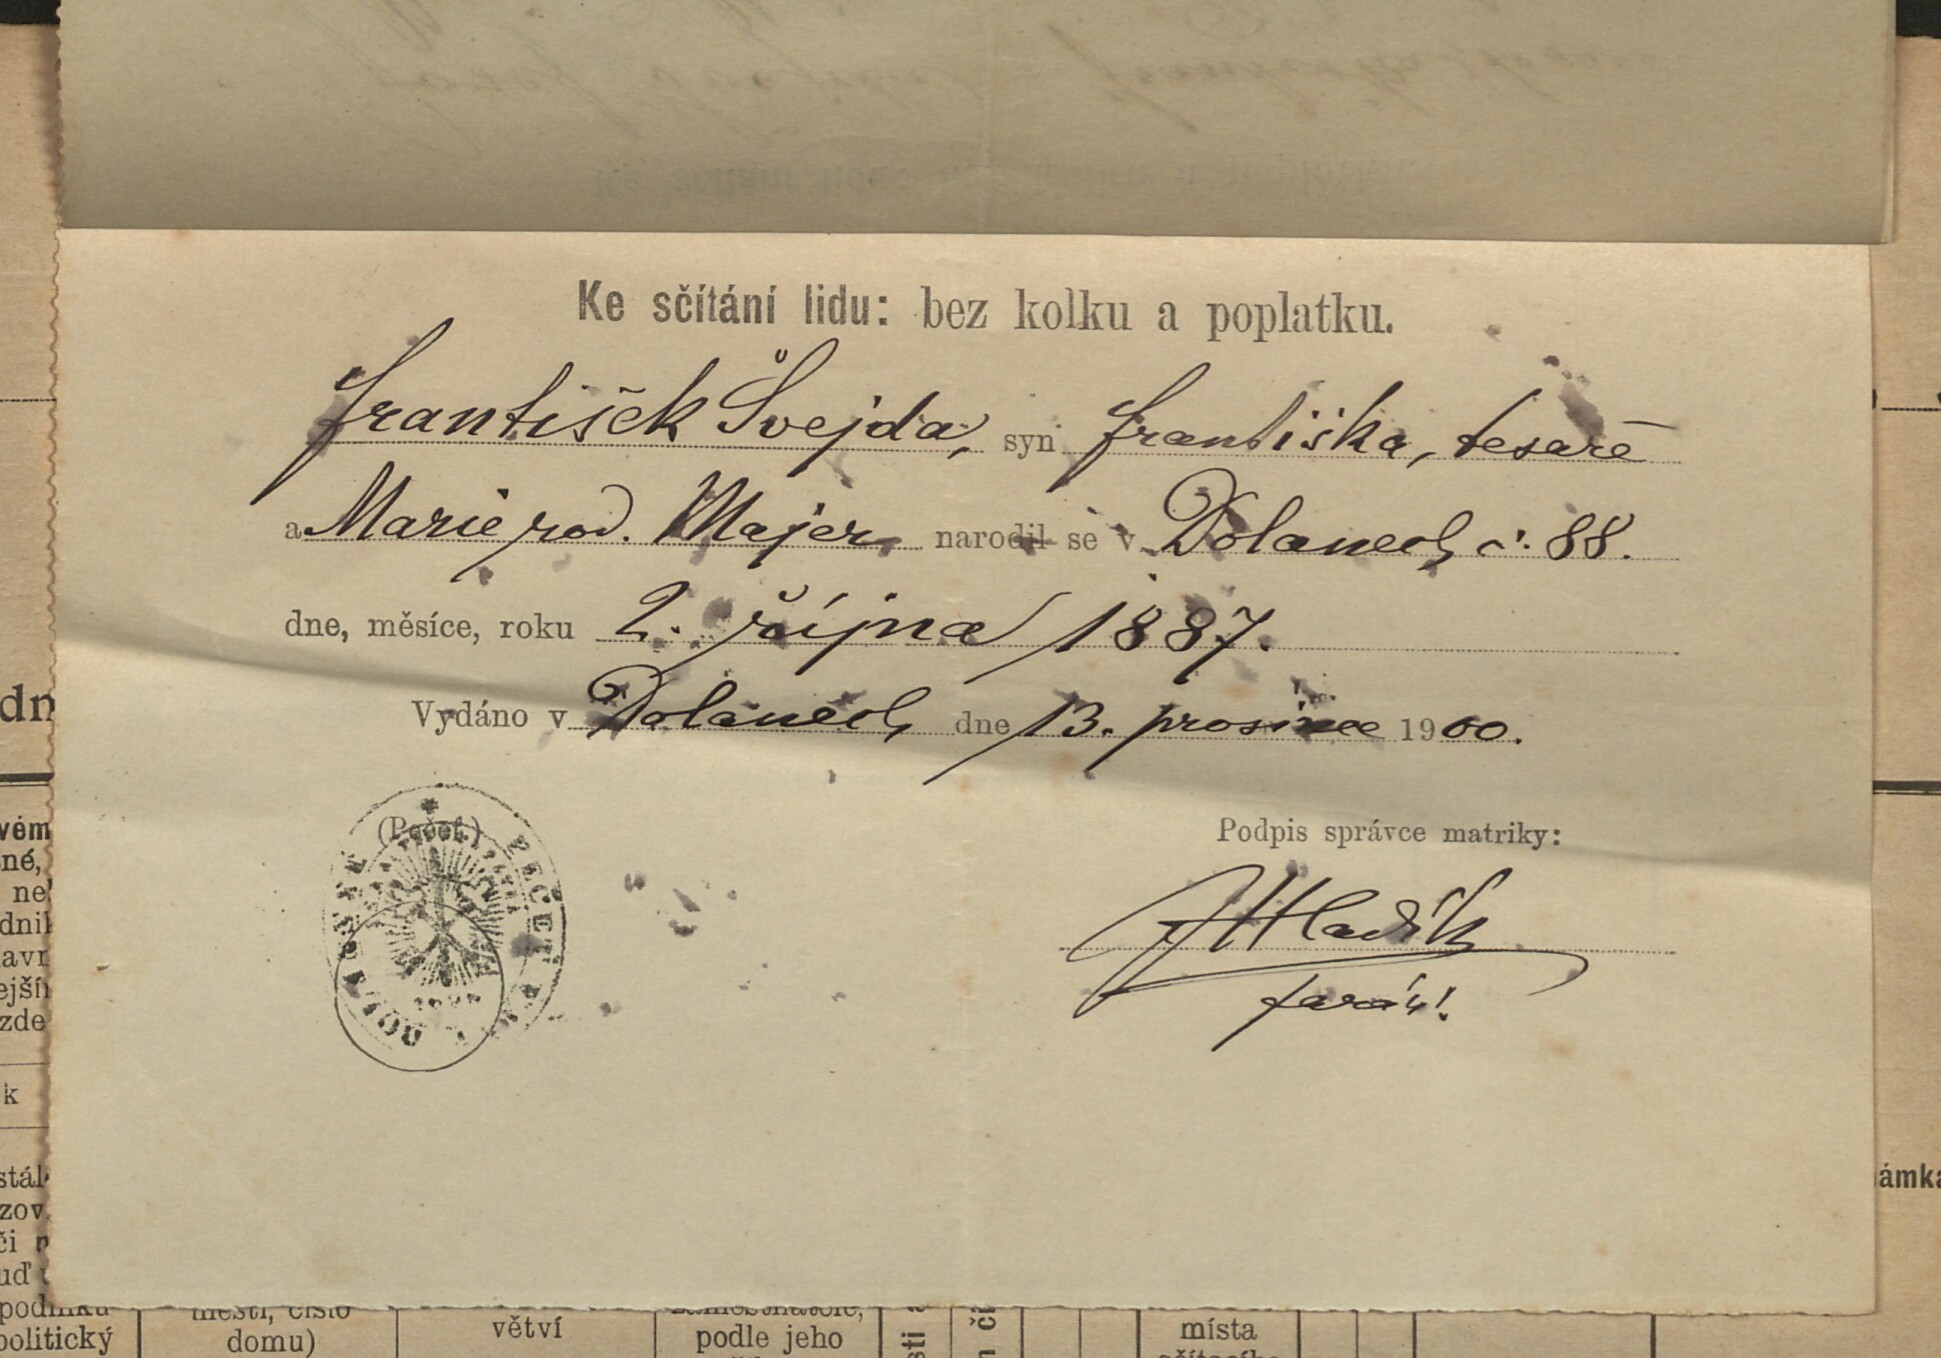 Ke sčítání lidu: bez kolku a poplatku.
František Švejda, syn Františka, tesaře
a Marie rod. Majer narodil se v Dolanech č. 88.
dne, měsíce, roku 2. října 1887.
Vydáno v Dolanech dne 13. prosince 1900.
(Pečeť.)
Podpis správce matriky:
Hladík
farář.
dn
vém
né,
ne
dnil
avr
ejší
zde
k
stál
zov
či
uď
podniku
politický
domu)
větví
podle jeho
místa
ámka